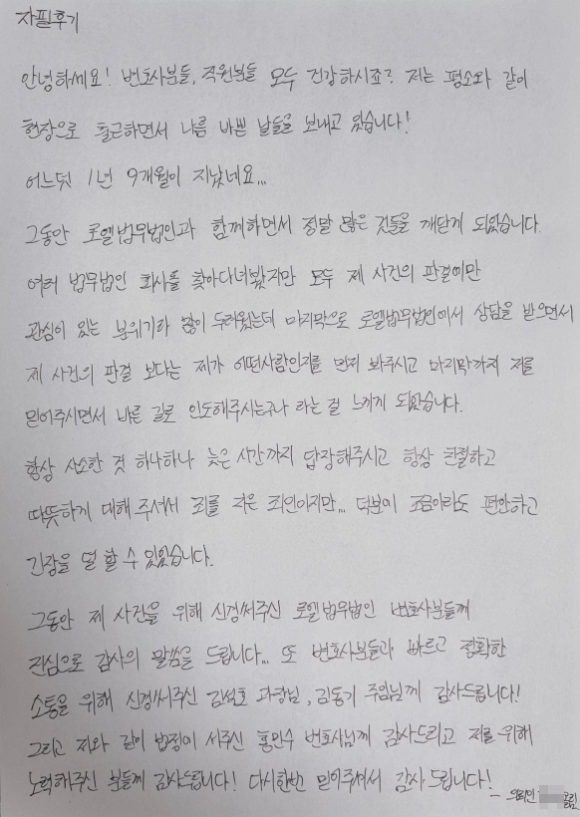 자필후기
안녕하세요! 변호사분들, 직원분들 모두 건강하시죠? 저는 평소와 같이
현장으로 출근하면서 나름 바쁜 날들을 보내고 있습니다!
어느덧 1년 9개월이 지났네요...
그동안 로엘법무법인과 함께하면서 정말 많은 것들을 깨닫게 되었습니다.
여러 법무법인 회사를 찾아다녀봤지만 모두 제 사건의 판결에만
관심이 있는 분위기라 많이 두려웠는데 마지막으로 로엘법무법인에서 상담을 받으면서
제 사건의 판결 보다는 제가 어떤사람인지를 먼저 봐주시고 마지막까지 저를
믿어주시면서 바른 길로 인도해주시는구나 라는 걸 느끼게 되었습니다.
항상 사소한 것 하나하나 늦은 시간까지 답장해주시고 항상 친절하고
따뜻하게 대해 주셔서 죄를 지은 죄인이지만... 덕분에 조금이라도 편안하고
긴장을 덜 할 수 있었습니다.
그동안 제 사건을 위해 신경써주신 로엘법무법인 변호사분들께
진심으로 감사의 말씀을 드립니다... 또 변호사분들과 빠르고 정확한
소통을 위해 신경써주신 김석호 과장님, 김동기 주임님께 감사드립니다!
그리고 저와 같이 법정에 서주신 홍민수 변호사님께 감사드리고 저를 위해
노력해주신 분들께 감사드립니다! 다시한번 믿어주셔서 감사드립니다!
- 의뢰인 올림